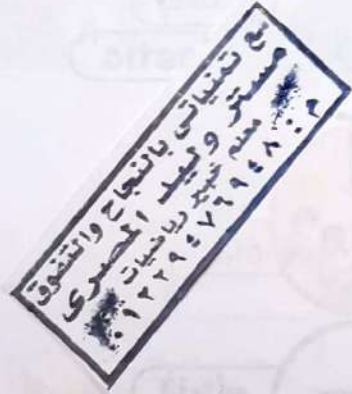 مع تمنياتى بالنجاح والتفوق
مستر وليد المصرى
معلم خبير رياضيات
م: ٠١٢٢٩٥٧٦٩٥٤٨